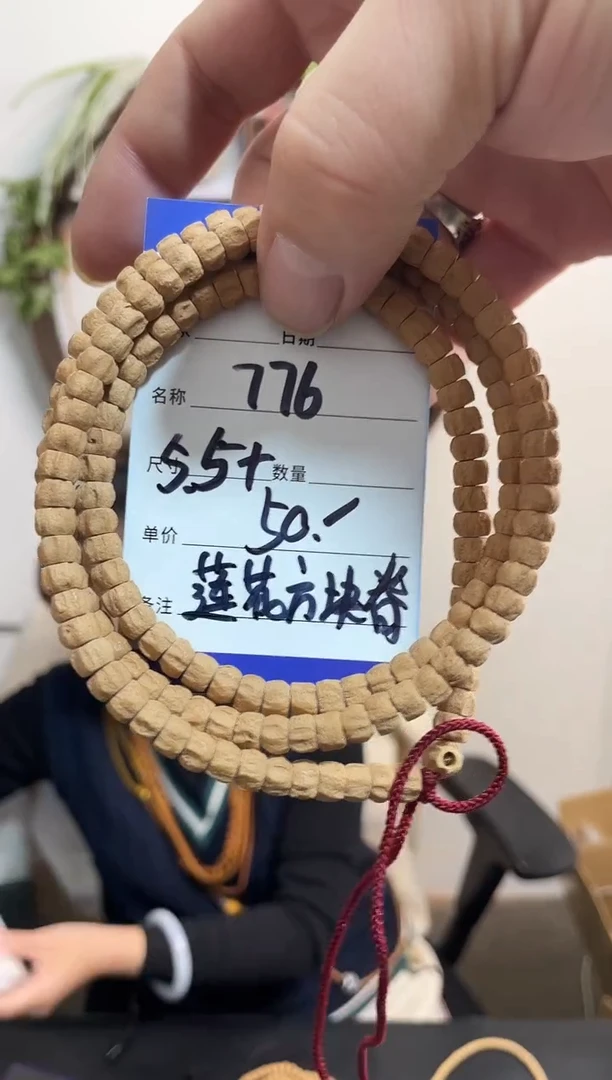 日期
名称 776
尺寸 5.5+ 数量
单价 50.-
备注 莲花方块脊